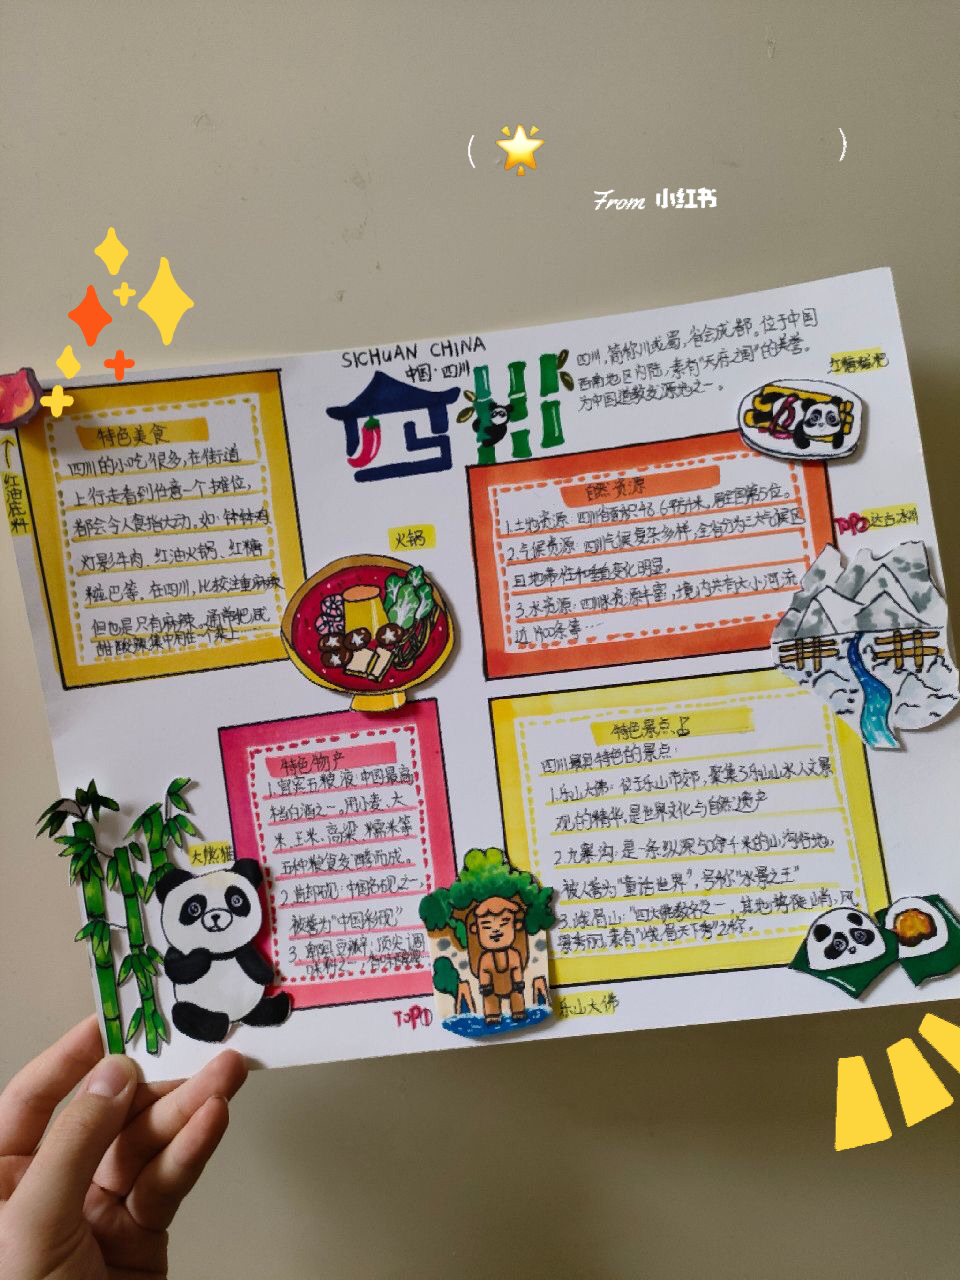 From 小红书
SICHUAN CHINA
中国·四川
四川
四川,简称川或蜀,省会成都。位于中国
西南地区内陆,素有"天府之国"的美誉。
为中国道教发源地之一。
红糖糍粑
红油底料
特色美食
四川的小吃很多,在街道
上行走看到任意一个摊位,
都会令人食指大动。如:钵钵鸡
灯影牛肉、红油火锅、红糖
糍巴等。在四川,比较注重麻辣
但也是只有麻辣。通常把咸
甜酸辣集中用在一个菜上
火锅
自然资源
1.土地资源:四川省面积48.6平方千米。居全国第5位。
2.气候资源:四川气候复杂多样,全省分为三大气候区
且地带性和垂直变化明显。
3.水资源:四川水资源丰富,境内共有大小河流
近1400条等…
TOP② 达古冰川
特色物产
1.宜宾五粮液:中国最高
档白酒之一。用小麦、大
米、玉米、高粱、糯米等
五种粮食发酵而成。
2.蜀绣:中国名绣之一,
被誉为"中国
3.郫县豆瓣:顶尖调
味料之一,
特色景点
四川最具特色的景点:
1.乐山大佛:位于乐山市郊,聚集了乐山山水人文景
观的精华,是世界文化与自然遗产
2.九寨沟:是一条纵深50余千米的山沟谷地,
被人誉为"童话世界",号称"水景之王"
3.峨眉山:"四大佛教名之一,其地势陡峭,风
景秀丽,素有"峨眉天下秀"之称。
大熊猫
TOP①
乐山大佛